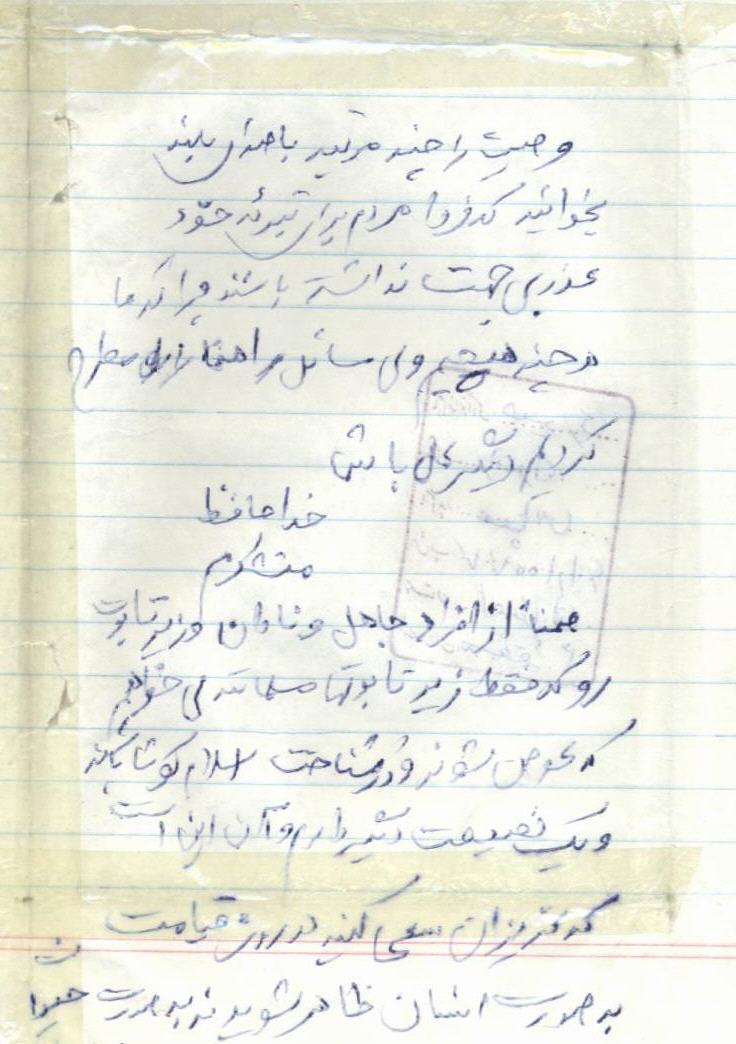 وصیت را چند مرتبه با صدای بلند
بخوانید که فردا مردم برای تبرئه خود
عذر بی جهت نداشته باشند چرا که ما
هر چند هیچیم ولی مسائل را همانا مطرح
کردیم دیگر عمل با شما
خداحافظ
متشکرم
ضمناً از افراد جاهل و نادان و زیر تابوت
رو که فقط زیر تابوتها مسلمانند می خواهم
که عوض شوند و در شناخت اسلام کوشا باشند
و یک نصیحت دیگر دارم و آن این است
که عزیزان سعی کنید در روز قیامت
به صورت انسان ظاهر شوید نه به صورت حیوان